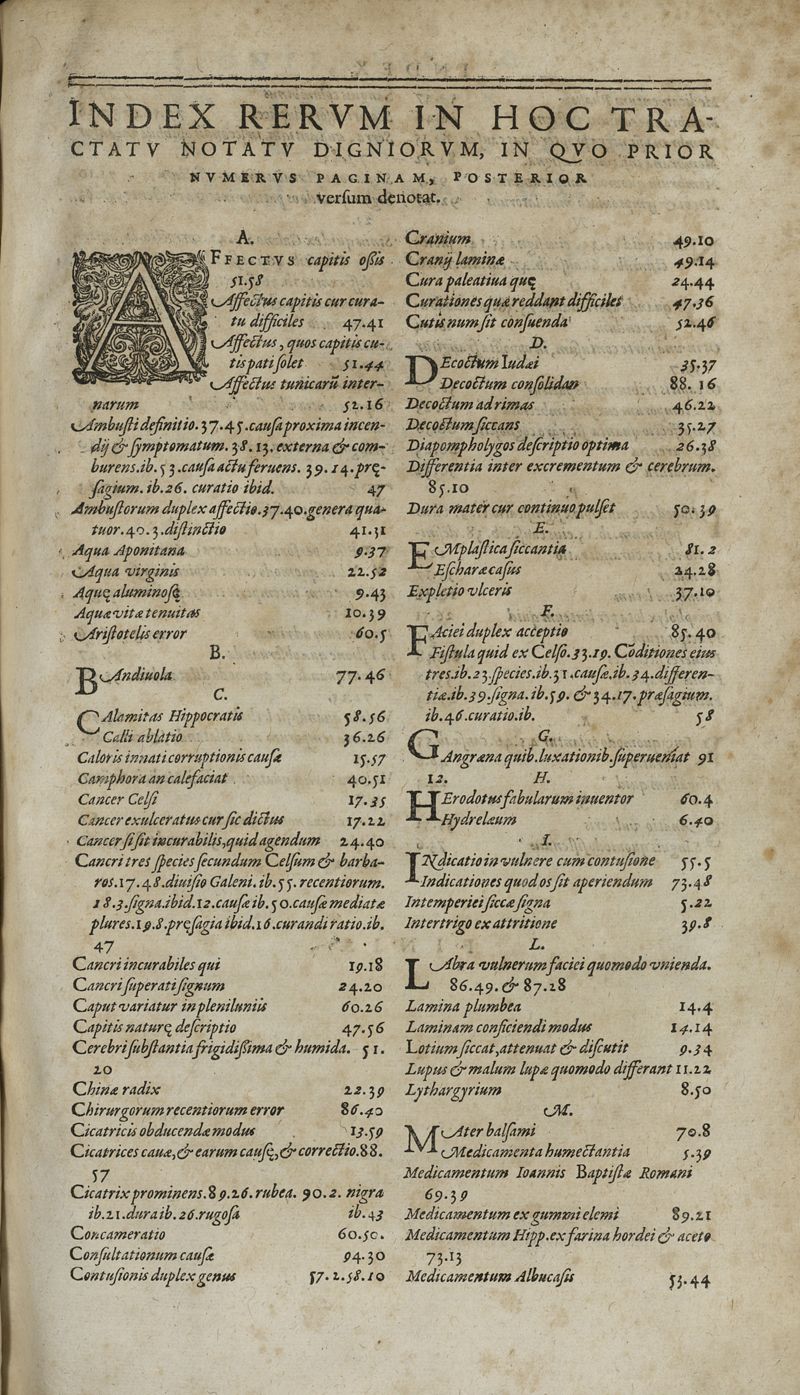 INDEX RERVM IN HOC TRA-
CTATV NOTATV DIGNIORVM, IN QVO PRIOR
NVMERVS PAGINAM, POSTERIOR
versum denotat.
A.
AFFECTVS capitis oßis
51.58
Affectus capitis cur cura-
tu difficiles 47.41
Affectus, quos capitis cu-
tis pati solet 51.44
Affectus tunicarū inter-
narum 52.16
Ambusti definitio. 37.45. causa proxima incen-
dij & symptomatum. 38.13. externa & com-
burens. ib. 53. causa actu ferens. 39.14. prę-
sagium. ib. 26. curatio ibid. 47
Ambustorum duplex affectio. 37.40. genera qua-
tuor. 40.3. distinctio 41.31
Aqua Aponitana 9.37
Aqua virginis 22.52
Aquę aluminosę 9.43
Aquæ vitæ tenuitas 10.39
Aristotelis error 60.5
B.
BAndiuola 77.46
C.
CAlamitas Hippocratis 58.56
Calli ablatio 36.26
Caloris innati corruptionis causæ 15.57
Camphora an calefaciat 40.51
Cancer Celsi 17.35
Cancer exulceratus cur sic dictus 17.22
Cancer si sit incurabilis, quid agendum 24.40
Cancri tres species secundum Celsum & barba-
ros. 17.48. diuisio Galeni. ib. 55. recentiorum.
18.3. signa. ibid. 12. causæ ib. 50. causæ mediatæ
plures. 19.8. pręsagia ibid. 16. curandi ratio. ib.
47
Cancri incurabiles qui 19.18
Cancri superati signum 24.20
Caput variatur in pleniluniis 60.26
Capitis naturę descriptio 47.56
Cerebri substantia frigidissima & humida. 51.
20
Chinæ radix 22.39
Chirurgorum recentiorum error 86.40
Cicatricis obducendæ modus 13.59
Cicatrices cauæ, & earum causę, & correctio. 88.
57
Cicatrix prominens. 89.26. rubea. 90.2. nigra
ib. 21. dura ib. 26. rugosa ib. 43
Concameratio 60.50.
Consultationum causæ 94.30
Contusionis duplex genus 57.2.58.10
Cranium 49.10
Cranij laminæ 49.14
Cura paleatiua quę 24.44
Curationes quæ reddant difficiles 47.36
Cutis num sit consuenda 52.46
D.
DEcoctum Iudæi 35.37
Decoctum consolidans 88.16
Decoctum ad rimas 46.22
Decoctum siccans 35.27
Diapompholygos descriptio optima 26.38
Differentia inter excrementum & cerebrum.
85.10
Dura mater cur continuo pulset 50.39
E.
EMplastica siccantia 81.2
Escharæ casus 24.28
Expletio vlceris 37.10
F.
FAciei duplex acceptio 85.40
Fistula quid ex Celso. 33.19. Cōditiones eius
tres. ib. 23. species. ib. 31. causæ. ib. 34. differen-
tiæ. ib. 39. signa. ib. 59. & 34.17. præsagium.
ib. 46. curatio. ib. 58
G.
GAngræna quib. luxationib. superueniat 91
12.
H.
HErodotus fabularum inuentor 60.4
Hydrelæum 6.40
I.
INdicatio in vulnere cum contusione 55.5
Indicationes quod os sit aperiendum 73.48
Intemperiei siccæ signa 5.22
Intertrigo ex attritione 39.8
L.
LAbra vulnerum faciei quomodo vnienda.
86.49. & 87.28
Lamina plumbea 14.4
Laminam conficiendi modus 14.14
Lotium siccat, attenuat & discutit 9.34
Lupus & malum lupæ quomodo differant 11.22
Lythargyrium 8.50
M.
MAter balsami 70.8
Medicamenta humectantia 5.39
Medicamentum Ioannis Baptistæ Romani
69.39
Medicamentum ex gummi elemi 89.21
Medicamentum Hipp. ex farina hordei & aceto
73.13
Medicamentum Albucasis 53.44